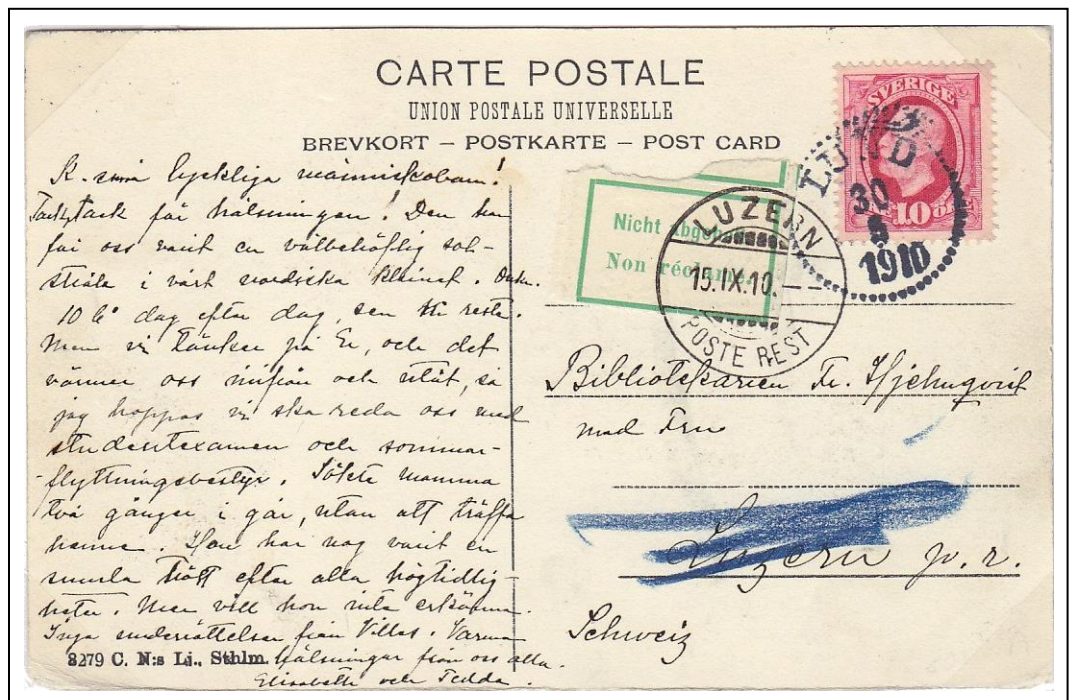 CARTE POSTALE
UNION POSTALE UNIVERSELLE
BREVKORT – POSTKARTE – POST CARD
K. små lyckliga människobarn!
Tack, tack för hälsningen! Den har
för oss varit en välbehöflig sol-
stråle i vårt nordiska klimat.
10 l° dag efter dag, sen Ni reste.
Men vi tänker på Er, och det
värmer oss inifrån och utåt, så
jag hoppas vi ska reda oss med
studentexamen och sommar-
flyttningsbestyr. Sökte mamma
två gånger i går, utan att träffa
henne. Hon har nog varit en
smula trött efter alla högtidlig-
heter. Men vill hon inte erkänna.
Inga underrättelser från Villas. Varma
hälsningar från oss alla.
Elisabeth och Tedda.
3279 C. N:s Lj., Sthlm.
SVERIGE
10 ÖRE
LUND
30
1910
Nicht abgeh
Non réclamé
LUZERN
15.IX.10.
POSTE REST
Bibliotekarien Fr. Hjelmqvist
med Fru
Luzern p. r.
Schweiz